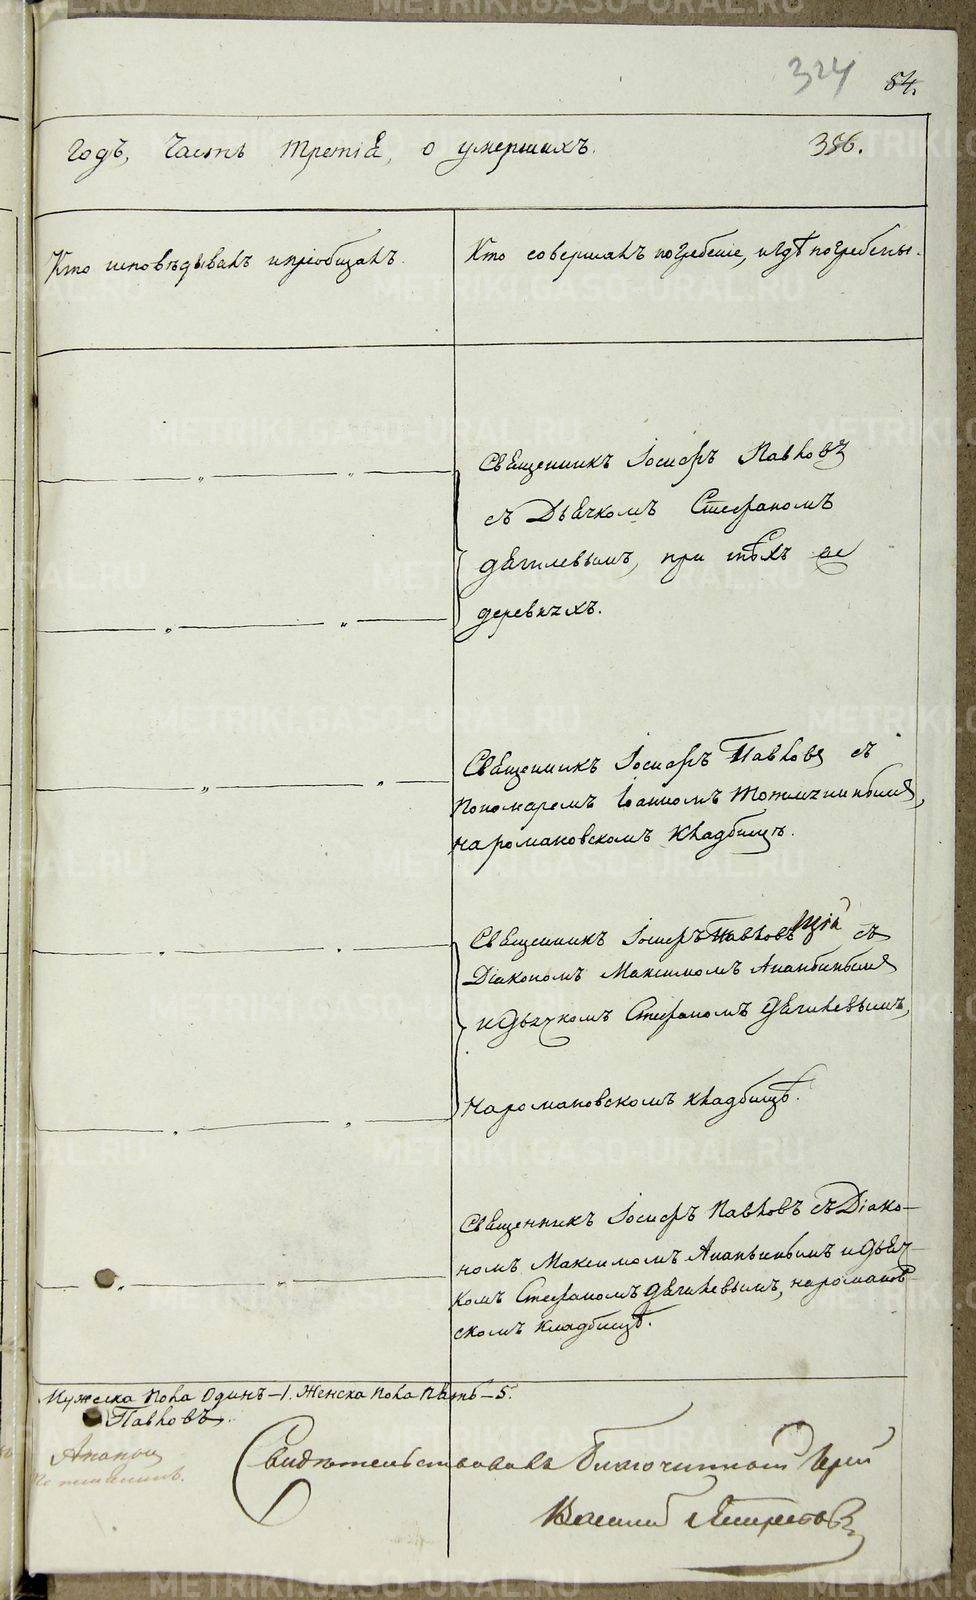 324 84.
годъ, Часть третія, о умершихъ. 356.
Кто исповѣдывалъ и пріобщалъ.
Кто совершалъ погребеніе, и гдѣ погребены.
Священникъ Іосифъ Павловъ
съ Дьячкомъ Стефаномъ
при тѣхъ же
деревняхъ.
Священникъ Іосифъ Павловъ съ
Пономаремъ Іоанномъ
на романовскомъ кладбищѣ.
Священникъ Іосифъ Павловъ съ
Діакономъ Максимомъ Ананьинымъ
и Дьячкомъ Стефаномъ
на романовскомъ кладбищѣ.
Священникъ Іосифъ Павловъ съ Діако-
номъ Максимомъ Ананьинымъ и дьяч-
комъ Стефаномъ на романов-
скомъ кладбищѣ.
Мужеска пола Одинъ – 1. Женска пола пять – 5.
Павловъ.
Свидѣтельствовалъ благочинный Іерей
Василій
METRIKI.GASO-URAL.RU